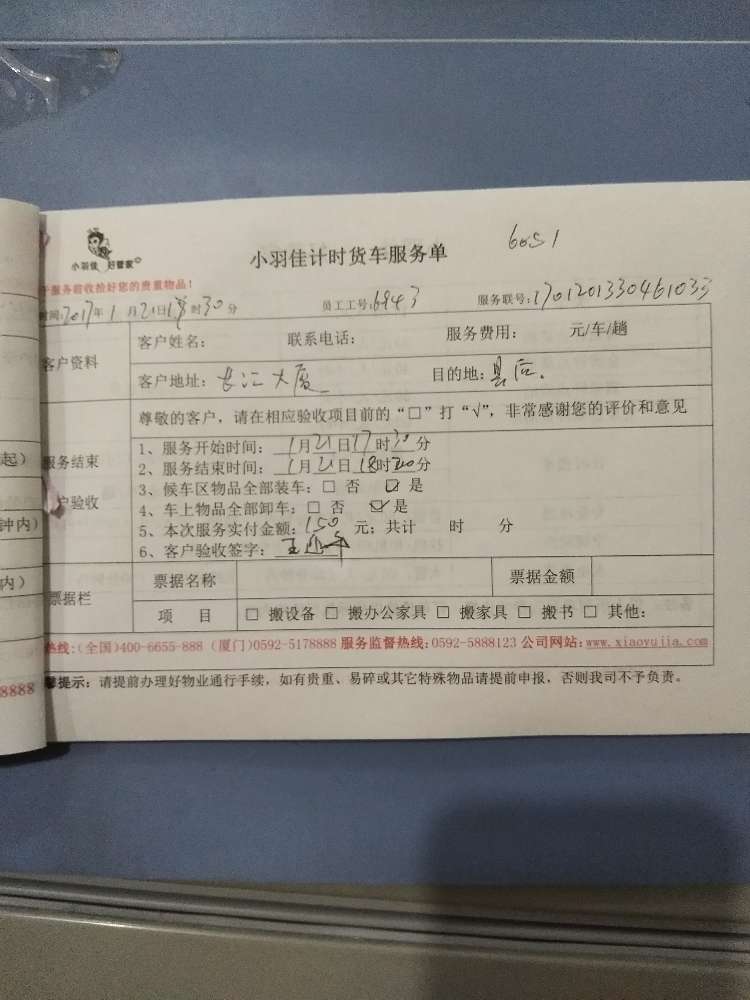 6051
小羽佳计时货车服务单
小羽佳 好管家
服务前收拾好您的贵重物品！
时间：2017年1月21日 时30分 员工工号：6943 服务联号：1701201330461033
客户资料
客户姓名： 联系电话： 服务费用： 元/车/趟
客户地址：长江大厦 目的地：县后.
尊敬的客户，请在相应验收项目前的“□”打“√”，非常感谢您的评价和意见
服务结束
客户验收
1、服务开始时间：1月21日17时30分
2、服务结束时间：1月21日18时30分
3、候车区物品全部装车：□ 否 ☑ 是
4、车上物品全部卸车：□ 否 ☑ 是
5、本次服务实付金额：150元；共计 时 分
6、客户验收签字：王
票据栏
票据名称 票据金额
项 目 □ 搬设备 □ 搬办公家具 □ 搬家具 □ 搬书 □ 其他：
热线：(全国)400-6655-888 (厦门)0592-5178888 服务监督热线：0592-5888123 公司网站：www.xiaoyujia.com
馨提示：请提前办理好物业通行手续，如有贵重、易碎或其它特殊物品请提前申报，否则我司不予负责。
起）
钟内）
内）
8888